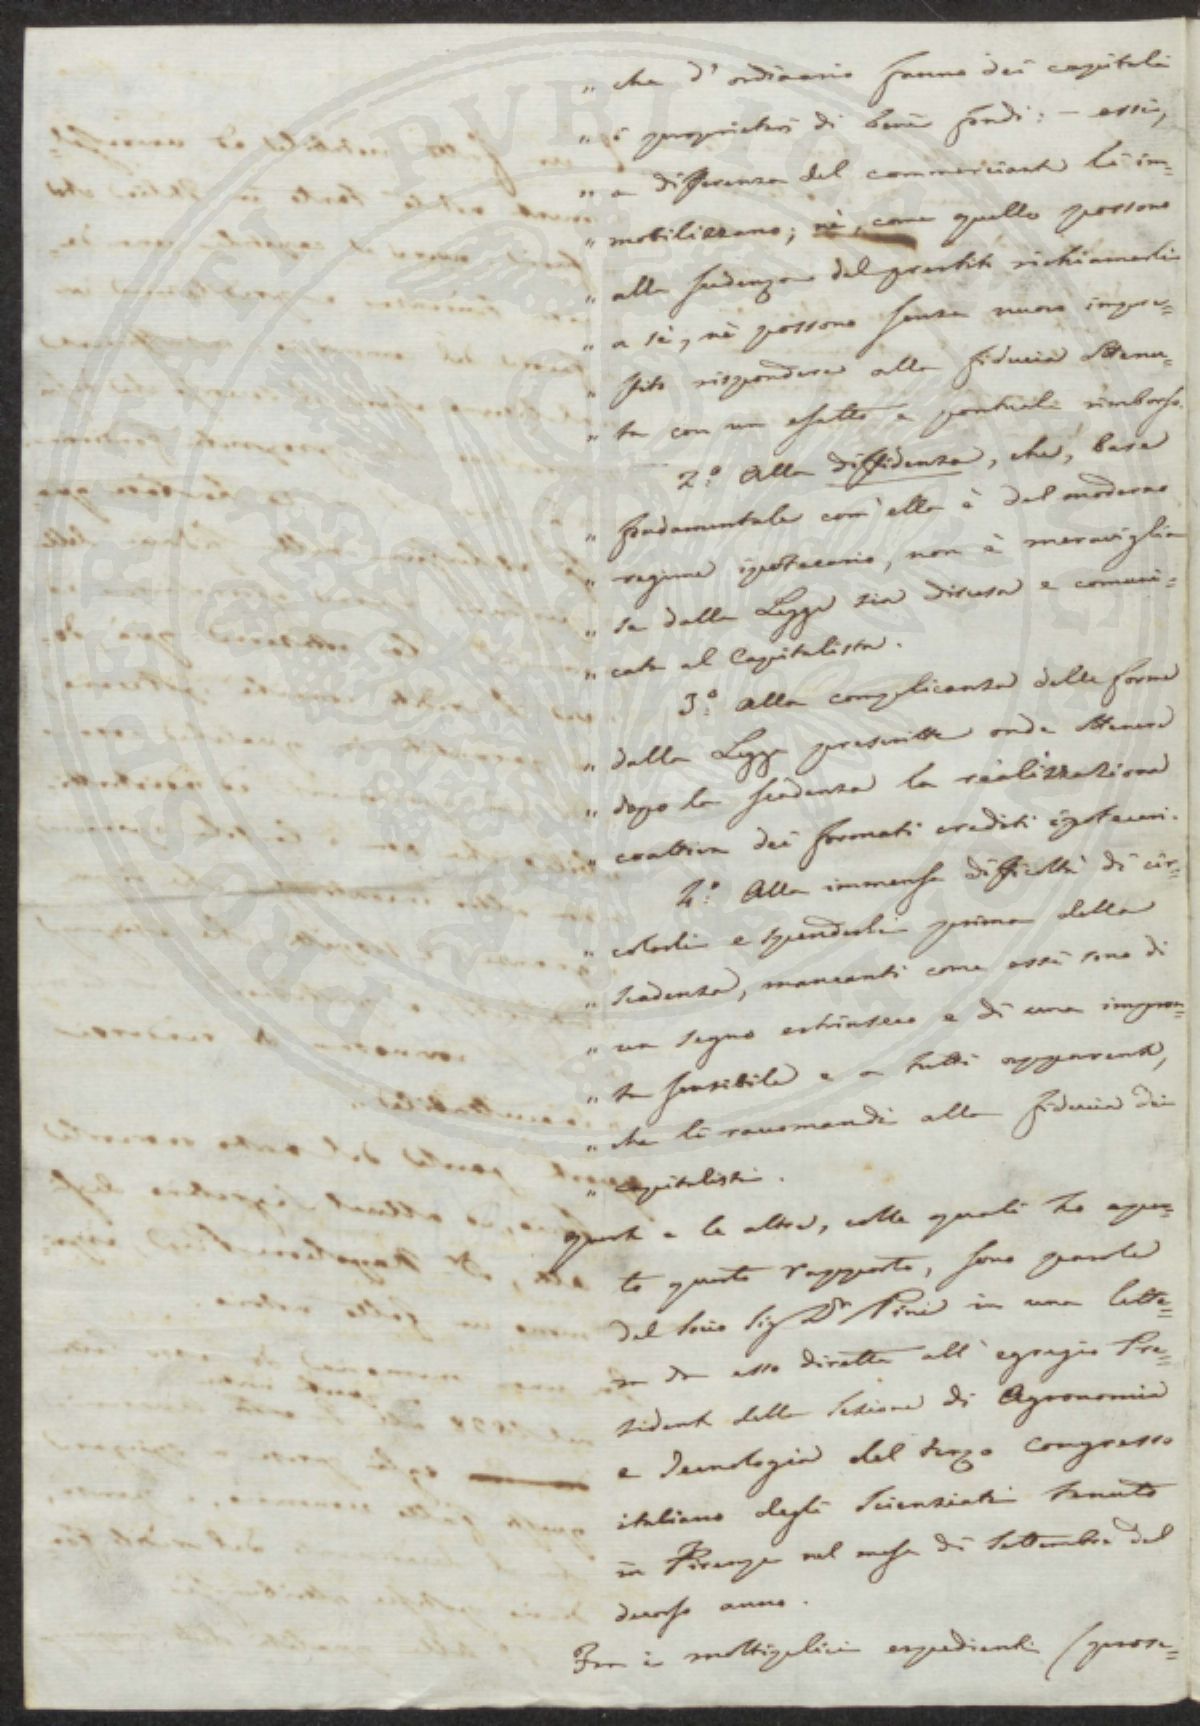 „ che d'ordinario fanno dei capitali
„ i proprietarj di beni fondi: – essi,
„ a differenza del commerciante li im=
„ mobilizzano; nè, come quello possono
„ alla scadenza del prestito richiamarli
„ a sè, nè possono senza nuovo impre=
„ stito rispondere alla fiducia ottenu=
„ ta con un esatto e pontuale rimborso.
2.° Alla diffidenza, che, base
„ fondamentale com'ella è del moderno
„ regime ipotecario, non è meraviglia
„ se dalla Legge sia discesa e comuni=
„ cata al Capitalista.
3.° Alla complicanza delle forme
„ dalla Legge prescritte onde ottenere
„ dopo la scadenza la realizzazione
„ coattiva dei formati crediti ipotecari.
4.° Alla immensa difficoltà di cir=
„ colarli e spenderli prima della
„ scadenza, mancanti come essi sono di
„ un segno estrinseco e di una impron=
„ ta sensibile e a tutti apparente,
„ che li raccomandi alla fiducia dei
„ capitalisti.
queste e le altre, colle quali ho aper=
to questo rapporto, sono parole
del socio Sig Dr Pini in una lette=
ra da esso diretta all'egregio Pre=
sidente della Sezione di Agronomia
e Tecnologia del terzo Congresso
italiano degli Scienziati tenuto
in Firenze nel mese di Settembre del
decorso anno.
Fra i moltiplici espedienti (prose=